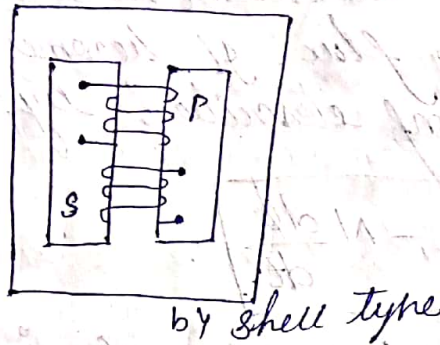 P
S
by shell type